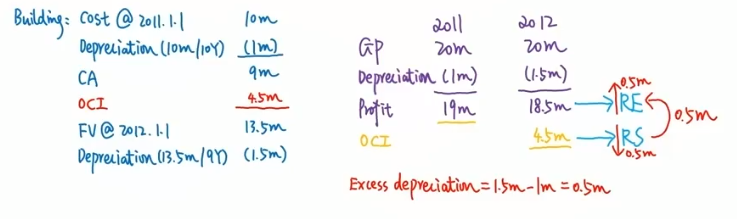 Building: Cost @ 2011.1.1 10m
Depreciation (10m/10Y) (1m)
CA 9m
OCI 4.5m
FV @ 2012.1.1 13.5m
Depreciation (13.5m/9Y) (1.5m)
2011 2012
GP 20m 20m
Depreciation (1m) (1.5m)
Profit 19m 18.5m → RE
0.5m
OCI 4.5m → RS
0.5m
0.5m
Excess depreciation = 1.5m - 1m = 0.5m